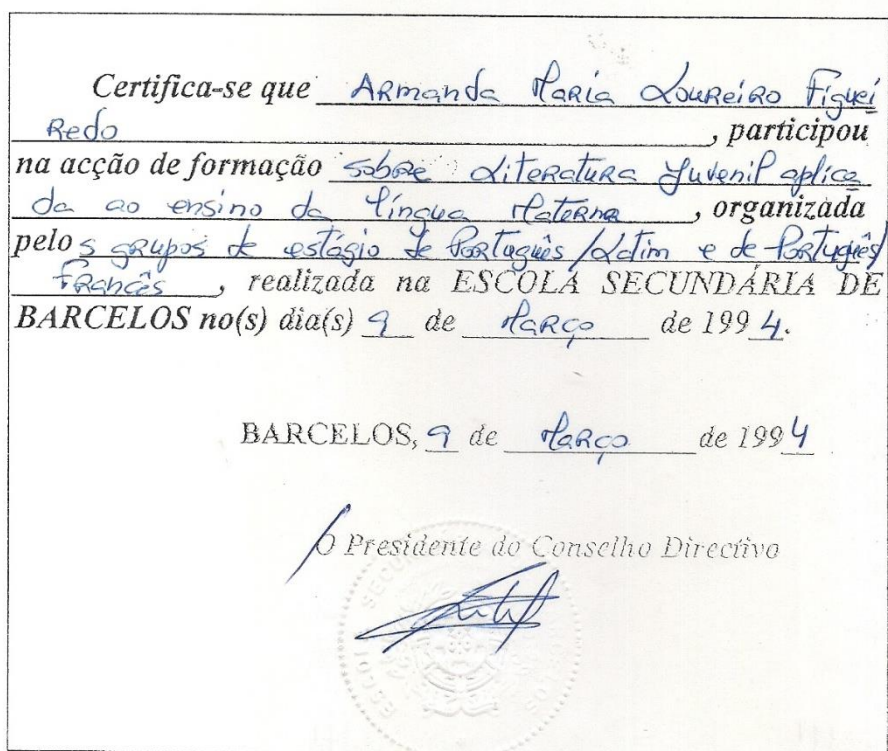 Certifica-se que Armanda Maria Loureiro Figuei
Redo, participou
na acção de formação sobre Literatura Juvenil aplica
da ao ensino da língua Materna, organizada
pelos grupos de estágio de Português/Latim e de Português/
Francês, realizada na ESCOLA SECUNDÁRIA DE
BARCELOS no(s) dia(s) 9 de Março de 1994.
BARCELOS, 9 de Março de 1994
O Presidente do Conselho Directivo